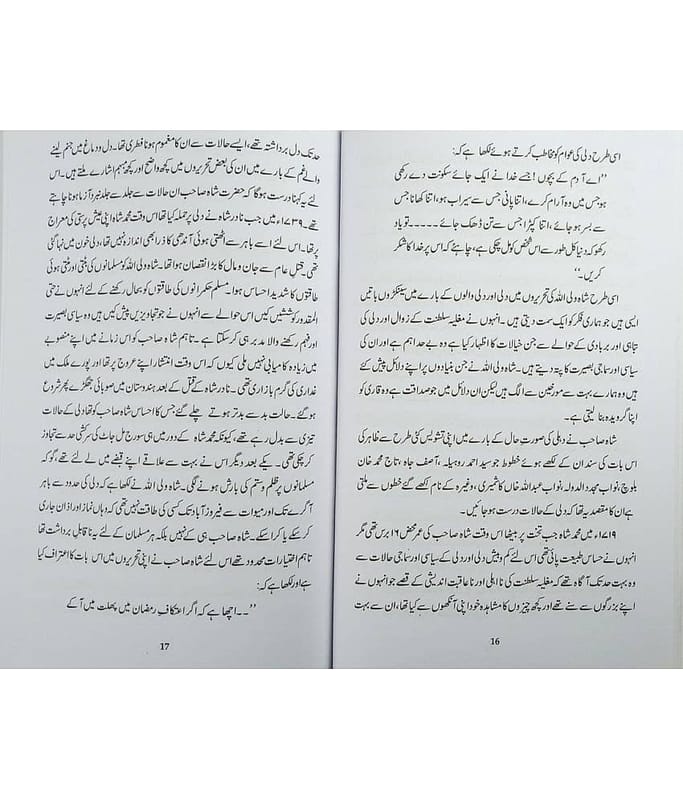 اسی طرح دلی کی عوام کو مخاطب کرتے ہوئے لکھا ہے کہ:
’’اے آدم کے بچوں! جسے خدا نے ایک جائے سکونت دے رکھی
ہو جس میں وہ آرام کرے، اتنا پانی جس سے سیراب ہو، اتنا کھانا جس
سے بسر ہو جائے، اتنا کپڑا جس سے تن ڈھک جائے۔۔۔۔۔تو یاد
رکھو کہ دنیا کل طور سے اس شخص کو مل چکی ہے، چاہئے کہ اس پر خدا کا شکر
کریں۔‘‘
اسی طرح شاہ ولی اللہ کی تحریروں میں دلی اور دلی والوں کے بارے میں سینکڑوں باتیں
ایسی ہیں جو ہماری فکر کو ایک سمت دیتی ہیں۔ انہوں نے مغلیہ سلطنت کے زوال اور دلی کی
تباہی اور بربادی کے حوالے سے جن خیالات کا اظہار کیا ہے وہ بے حد اہم ہے اور ان کی
سیاسی اور سماجی بصیرت کا پتہ دیتے ہیں۔ شاہ ولی اللہ نے جن بنیادوں پر اپنے دلائل پیش کئے
ہیں وہ ہمارے بہت سے مورخین سے الگ ہیں لیکن ان دلائل میں جو صداقت ہے وہ قاری کو
اپنا گرویدہ بنا لیتی ہے۔
شاہ صاحب نے دہلی کی صورتِ حال کے بارے میں اپنی تشویش کئی طرح سے ظاہر کی
اس بات کی سند ان کے لکھے ہوئے خطوط جو سید احمد روہیلہ، آصف جاہ، تاج محمد خان
بلوچ، نواب مجدد الدولہ، نواب عبداللہ خاں کاشمیری، وغیرہ کے نام لکھے گئے خطوں سے ملتی
ہے ان کا مقصد یہی تھا کہ دلی کے حالات درست ہو جائیں۔
۱۷۱۹ء میں محمد شاہ جب تخت پر بیٹھا اس وقت شاہ صاحب کی عمر محض ۱۶ برس تھی مگر
انہوں نے حساس طبیعت پائی تھی اس لئے کم و بیش دلی اور دلی کے سیاسی اور سماجی حالات سے
وہ بہت حد تک آگاہ تھے کہ مغلیہ سلطنت کی نااہلی اور ناعاقبت اندیشی کے قصے جو انہوں نے
اپنے بزرگوں سے سنے تھے اور کچھ چیزوں کا مشاہدہ خود اپنی آنکھوں سے کیا تھا، ان سے بہت
16
حد تک دل برداشتہ تھے، ایسے حالات سے ان کا مغموم ہونا فطری تھا۔ دل و دماغ میں جنم لینے
والے غم کے بارے میں ان کی بعض تحریروں میں کچھ واضح اور کچھ مبہم اشارے ملتے ہیں۔ اس
لئے یہ کہنا درست ہوگا کہ حضرت شاہ صاحب ان حالات سے جلد سے جلد نبرد آزما ہونا چاہتے
تھے۔ ۱۷۳۹ء میں جب نادر شاہ نے دلی پر حملہ کیا تھا اس وقت محمد شاہ اپنی عیش پرستی کی معراج
پر تھا۔ اس لئے اسے باہر سے اٹھتی ہوئی آندھی کا ذرا بھی اندازہ نہیں تھا، دلی خون میں نہا گئی
تھی۔ قتلِ عام سے جان و مال کا بڑا نقصان ہوا تھا۔ شاہ ولی اللہ کو مسلمانوں کی بنتی اور مٹتی ہوئی
طاقتوں کا شدید احساس ہوا۔ مسلم حکمرانوں کی طاقتوں کو بحال رکھنے کے لئے انہوں نے حتی
المقدور کوششیں کیں اس حوالے سے انہوں نے جو تجاویزیں پیش کیں ہیں وہ سیاسی بصیرت
اور فہم رکھنے والا مدبر ہی کر سکتا ہے۔ تاہم شاہ صاحب کو اس زمانے میں اپنے منصوبے
میں زیادہ کامیابی نہیں ملی کیوں کہ اس وقت انتشار اپنے عروج پر تھا اور پورے ملک میں
غداری کی گرم بازاری تھی۔ نادر شاہ کے قتل کے بعد ہندوستان میں صوبائی جھگڑے پھر شروع
ہو گئے۔ حالت بد سے بدتر ہوتے چلے گئے جس کا احساس شاہ صاحب کو تھا دلی کے حالات
تیزی سے بدل رہے تھے، کیونکہ محمد شاہ کے دور میں ہی سورج مل جاٹ کی سرکشی حد سے تجاوز
کر چکی تھی۔ یکے بعد دیگر اس نے بہت سے علاقے اپنے قبضے میں لے لئے تھے، گو کہ
مسلمانوں پر ظلم و ستم کی بارش ہونے لگی۔ شاہ ولی اللہ نے لکھا ہے کہ دلی کی حدود سے باہر
آگرے تک اور میوات سے فیروز آباد تک کسی کی طاقت نہیں تھی کہ وہاں نماز اور اذان جاری
کر سکے یا کرا سکے۔ شاہ صاحب ہی کے نہیں بلکہ ہر مسلمان کے لئے یہ ناقابلِ برداشت تھا
تاہم اختیارات محدود تھے اس لئے شاہ صاحب نے اپنی تحریروں میں اس بات کا اعتراف کیا
ہے اور لکھا ہے کہ:
’’۔۔اچھا ہے کہ اگر اعتکافِ رمضان میں پھلت میں آ کے
17